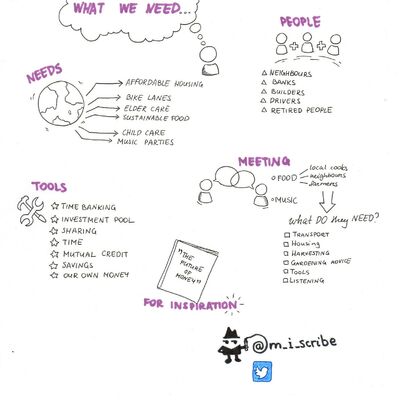 WHAT WE NEED...
PEOPLE
NEIGHBOURS
BANKS
BUILDERS
DRIVERS
RETIRED PEOPLE
NEEDS
AFFORDABLE HOUSING
BIKE LANES
ELDER CARE
SUSTAINABLE FOOD
CHILD CARE
MUSIC PARTIES
MEETING
FOOD
local cooks
neighbours
farmers
MUSIC
what DO they NEED?
TRANSPORT
Housing
HARVESTING
GARDENING ADVICE
TOOLS
LISTENING
TOOLS
TIME BANKING
INVESTMENT POOL
SHARING
TIME
MUTUAL CREDIT
SAVINGS
OUR OWN MONEY
"THE
FUTURE
OF
MONEY"
FOR INSPIRATION
@m_i_scribe